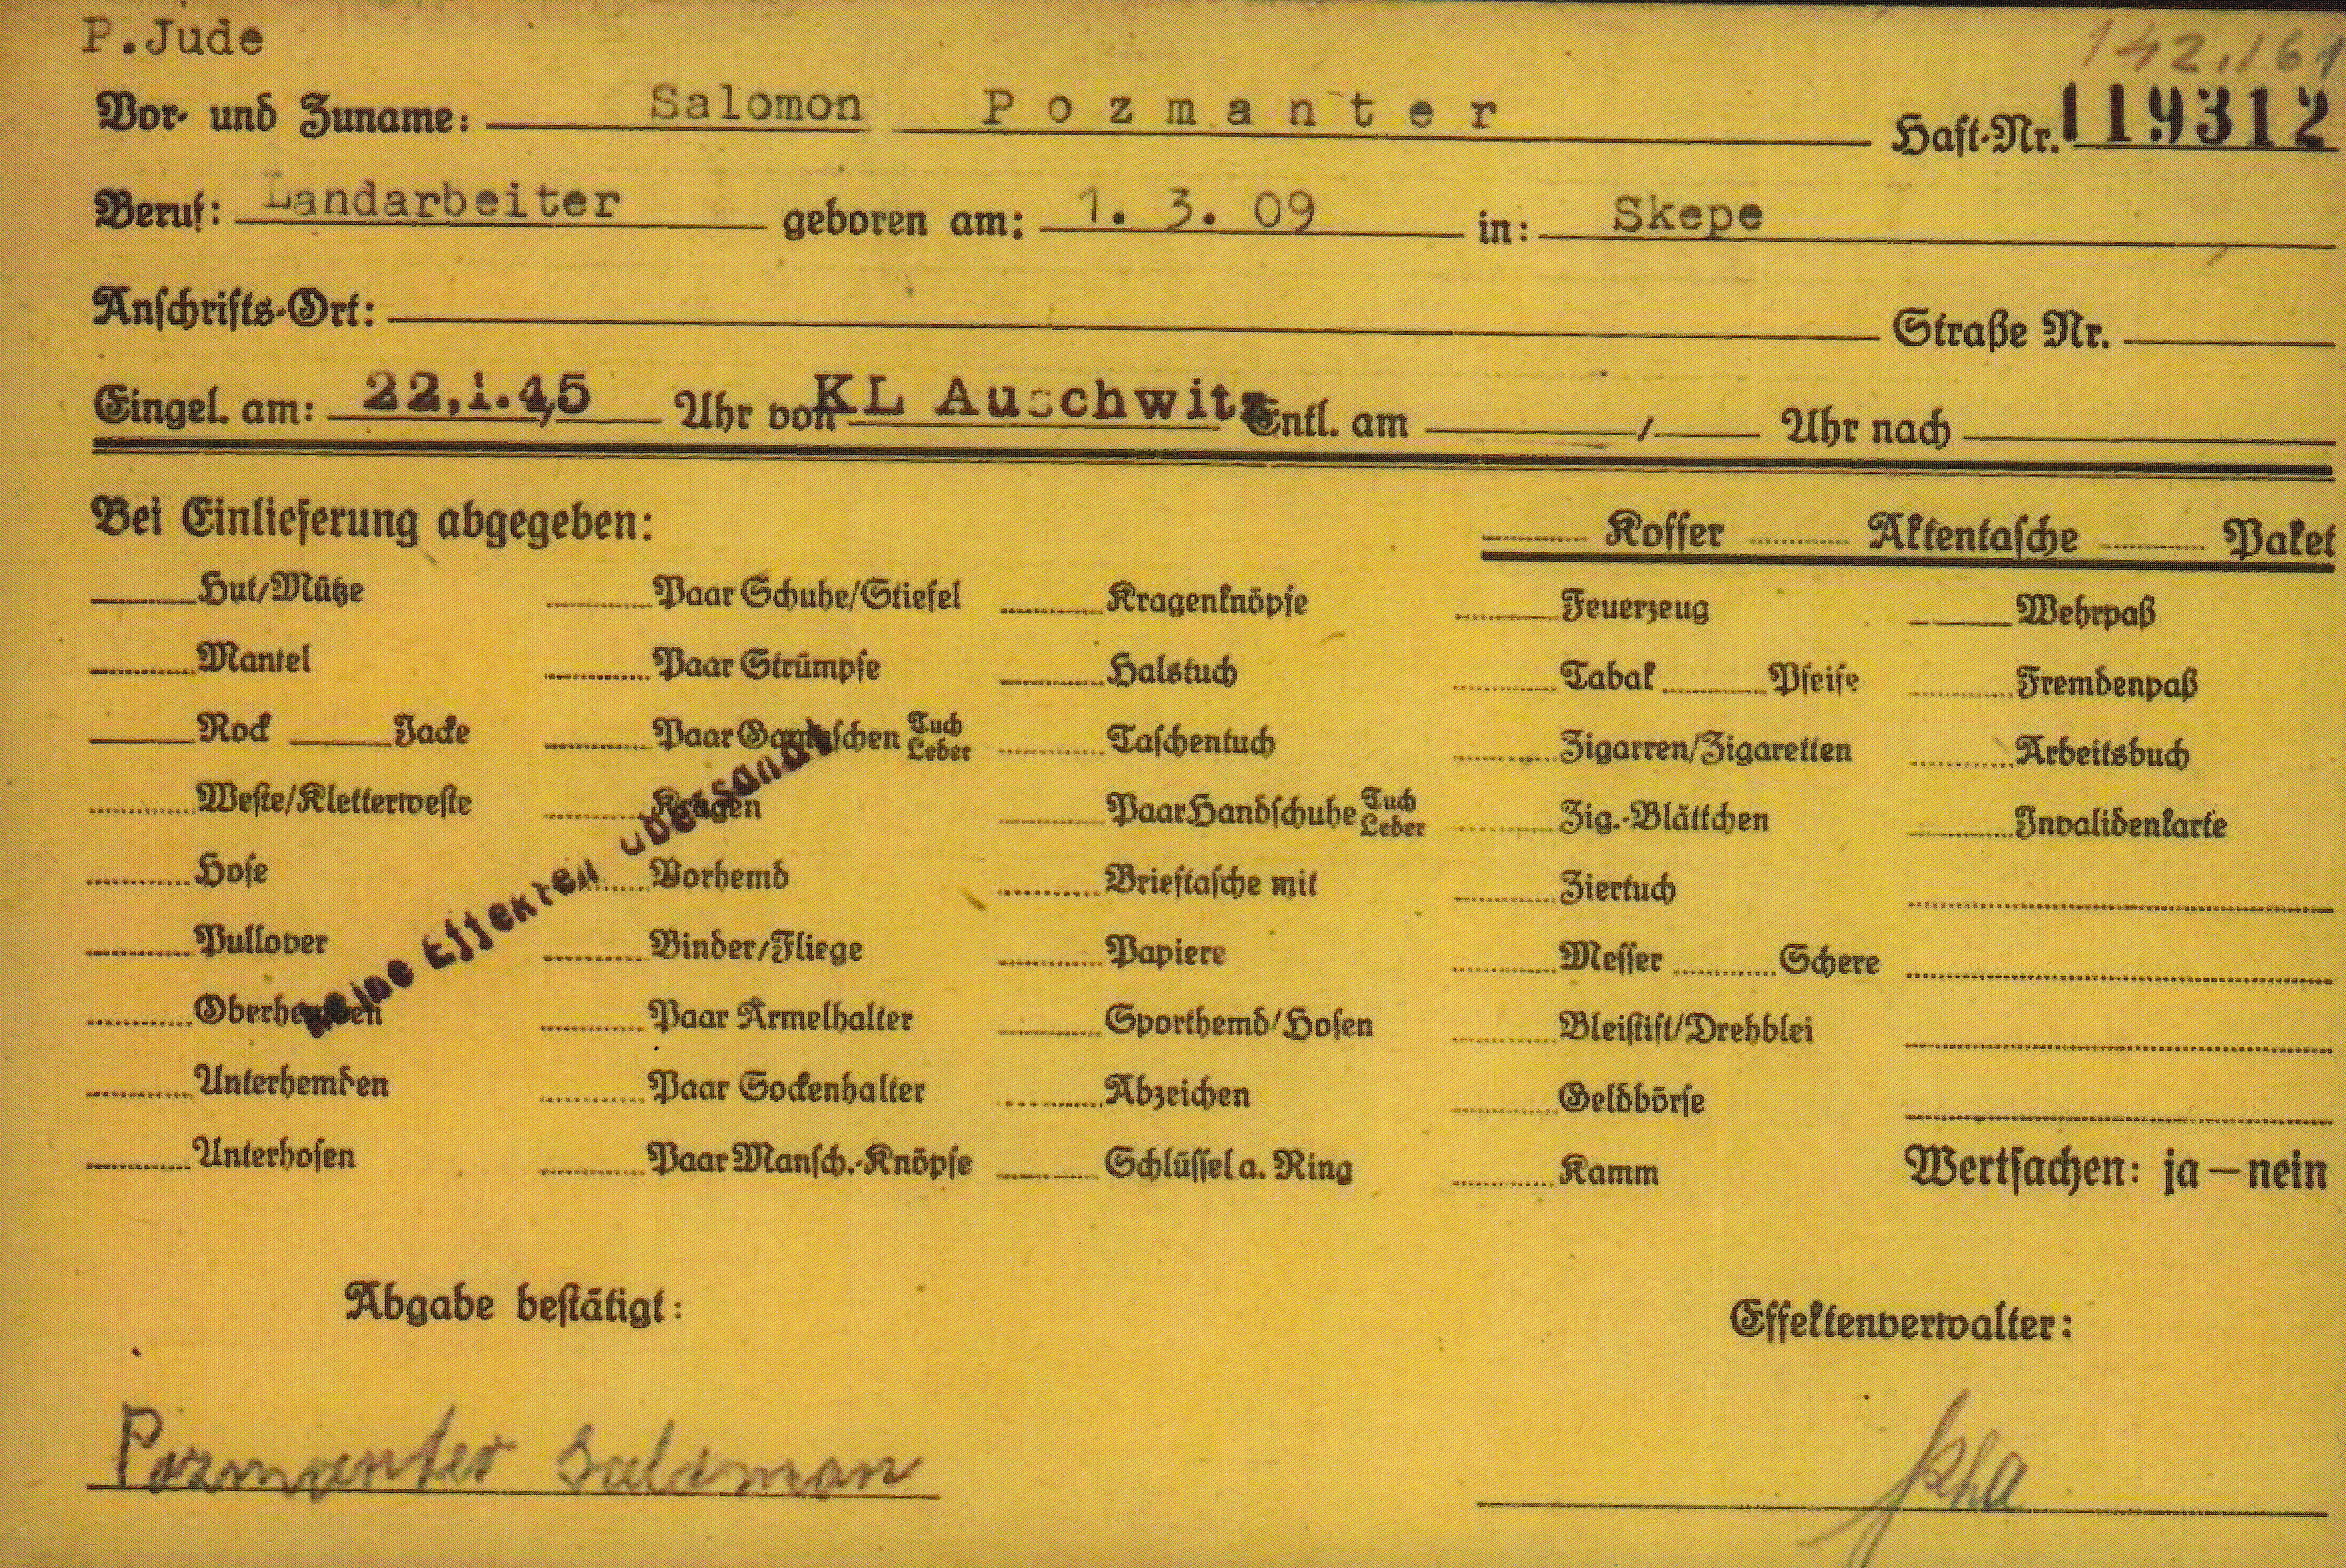 P.Jude
142.161
Vor- und Zuname: Salomon Pozmanter Haft-Nr. 119312
Beruf: Landarbeiter geboren am: 1. 3. 09 in: Skepe
Anschrifts-Ort: Straße Nr.
Eingel. am: 22.1.45 Uhr von KL Auschwitz Entl. am / Uhr nach
Bei Einlieferung abgegeben: Koffer Aktentasche Paket
Hut/Mütze Paar Schuhe/Stiefel Kragenknöpfe Feuerzeug Wehrpaß
Mantel Paar Strümpfe Halstuch Tabak Pfeife Fremdenpaß
Rock Jacke Paar Gamaschen Tuch Leder Taschentuch Zigarren/Zigaretten Arbeitsbuch
Weste/Kletterweste Kragen Paar Handschuhe Tuch Leder Zig.-Blättchen Invalidenkarte
Hose Vorhemd Brieftasche mit Ziertuch
Pullover Binder/Fliege Papiere Messer Schere
Oberhemden Paar Ärmelhalter Sporthemd/Hosen Bleistift/Drehblei
Unterhemden Paar Sockenhalter Abzeichen Geldbörse
Unterhosen Paar Mansch.-Knöpfe Schlüssel a. Ring Kamm Wertsachen: ja – nein
Keine Effekten übersandt
Abgabe bestätigt: Effektenverwalter:
Pozmanter Salomon